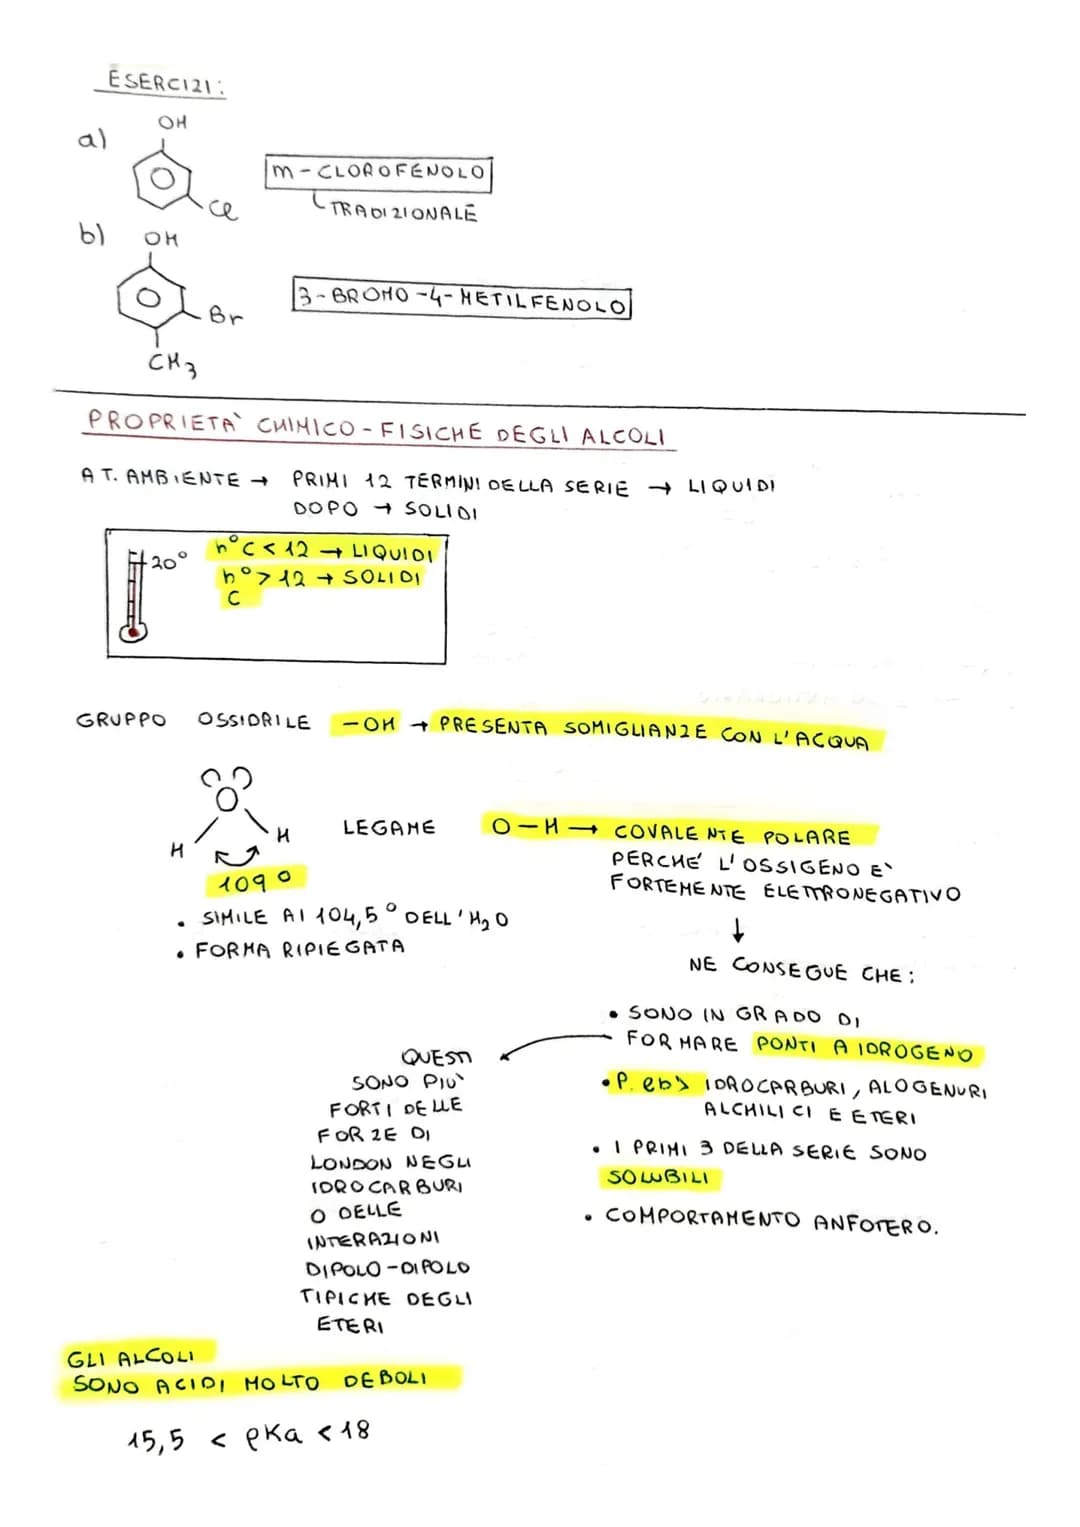 ESERCIZI:
a)
OH
Cl
m-CLOROFENOLO
TRADIZIONALE
b)
OH
Br
CH3
3-BROMO-4-METILFENOLO
PROPRIETA' CHIMICO-FISICHE DEGLI ALCOLI
A T. AMBIENTE → PRIMI 12 TERMINI DELLA SERIE → LIQUIDI
DOPO → SOLIDI
20°
n°C < 12 → LIQUIDI
n° > 12 → SOLIDI
C
GRUPPO OSSIDRILE -OH → PRESENTA SOMIGLIANZE CON L'ACQUA
O
H H
109°
• SIMILE AI 104,5° DELL'H2O
• FORMA RIPIEGATA
LEGAME O-H → COVALENTE POLARE
PERCHE' L'OSSIGENO E'
FORTEMENTE ELETTRONEGATIVO
↓
NE CONSEGUE CHE:
• SONO IN GRADO DI
FORMARE PONTI A IDROGENO
• P. eb > IDROCARBURI, ALOGENURI
ALCHILICI E ETERI
• I PRIMI 3 DELLA SERIE SONO
SOLUBILI
• COMPORTAMENTO ANFOTERO.
QUESTI
SONO PIU'
FORTI DELLE
FORZE DI
LONDON NEGLI
IDROCARBURI
O DELLE
INTERAZIONI
DIPOLO-DIPOLO
TIPICHE DEGLI
ETERI
GLI ALCOLI
SONO ACIDI MOLTO DEBOLI
15,5 < pKa < 18